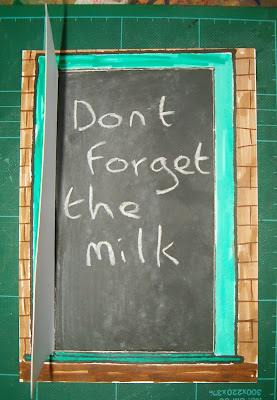 Dont
forget
the
milk
300x220x3%